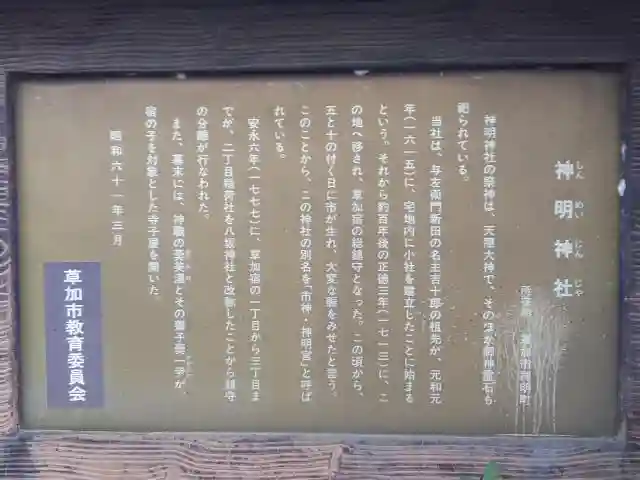 神明神社
しんめいじんじゃ
所在地 草加市神明町
神明神社の祭神は、天照大神で、そのほか御神霊石も
祀られている。
当社は、与左衛門新田の名主吉十郎の祖先が、元和元
年(一六一五)に、宅地内に小社を建立したことに始まる
という。それから約百年後の正徳三年(一七一三)に、こ
の地へ移され、草加宿の総鎮守となった。この頃から、
五と十の付く日に市が生れ、大変な賑をみせたと言う。
このことから、この神社の別名を「市神・神明宮」と呼ば
れている。
安永六年(一七七七)に、草加宿の一丁目から三丁目ま
でが、二丁目稲荷社を八坂神社と改称したことから鎮守
の分離が行なわれた。
また、幕末には、神職の とその御子 が、
宿の子を対象とした寺子屋を開いた。
昭和六十一年三月
草加市教育委員会